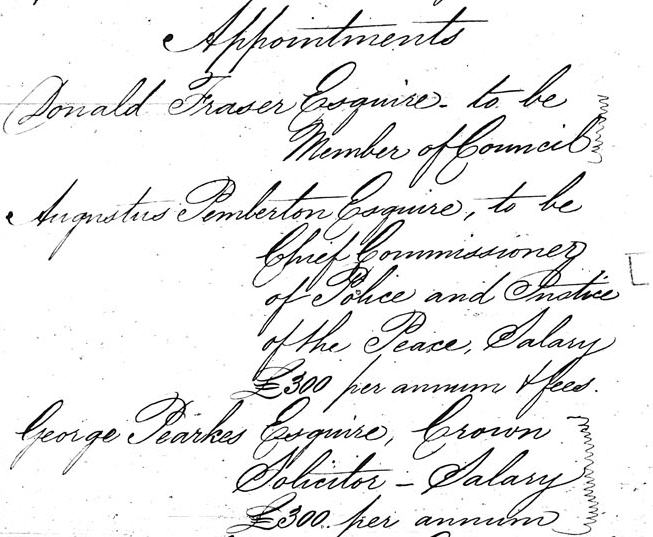 Appointments
Donald Fraser Esquire - to be
Member of Council
Augustus Pemberton Esquire, to be
Chief Commissioner
of Police and Justice
of the Peace, Salary
£300 per annum & fees.
George Pearkes Esquire, Crown
Solicitor - Salary
£300 per annum